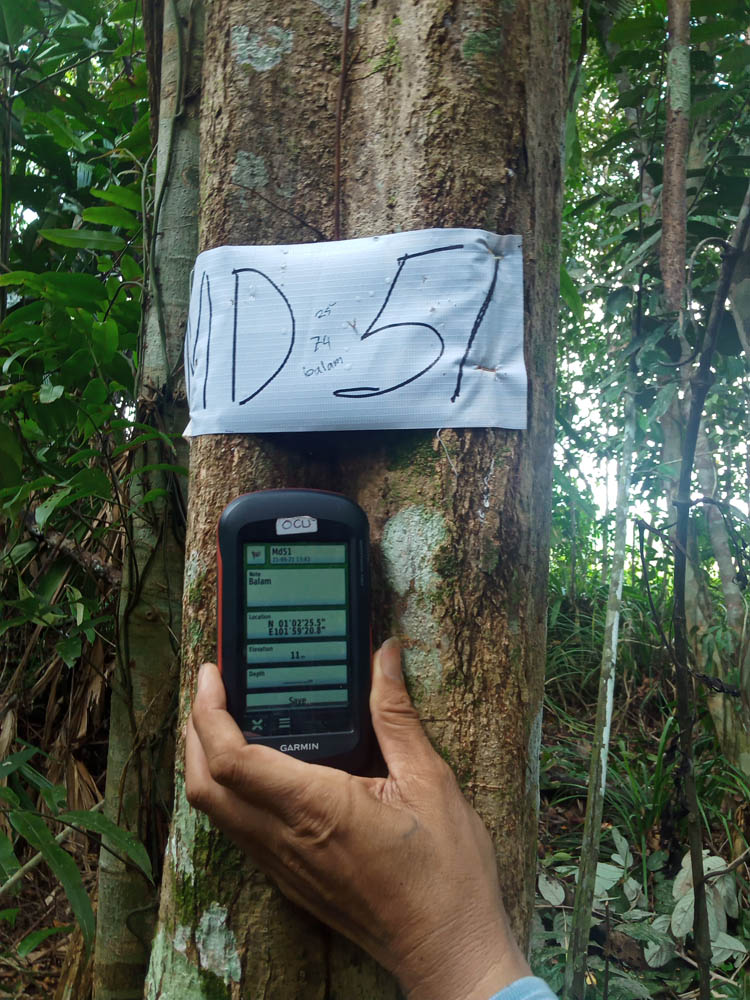 MD 51
25
74
balam
OCU
Md51
Note
Balam
Location
N 01°02'25.5"
E101°59'20.8"
Elevation
11m
Depth
Save
GARMIN